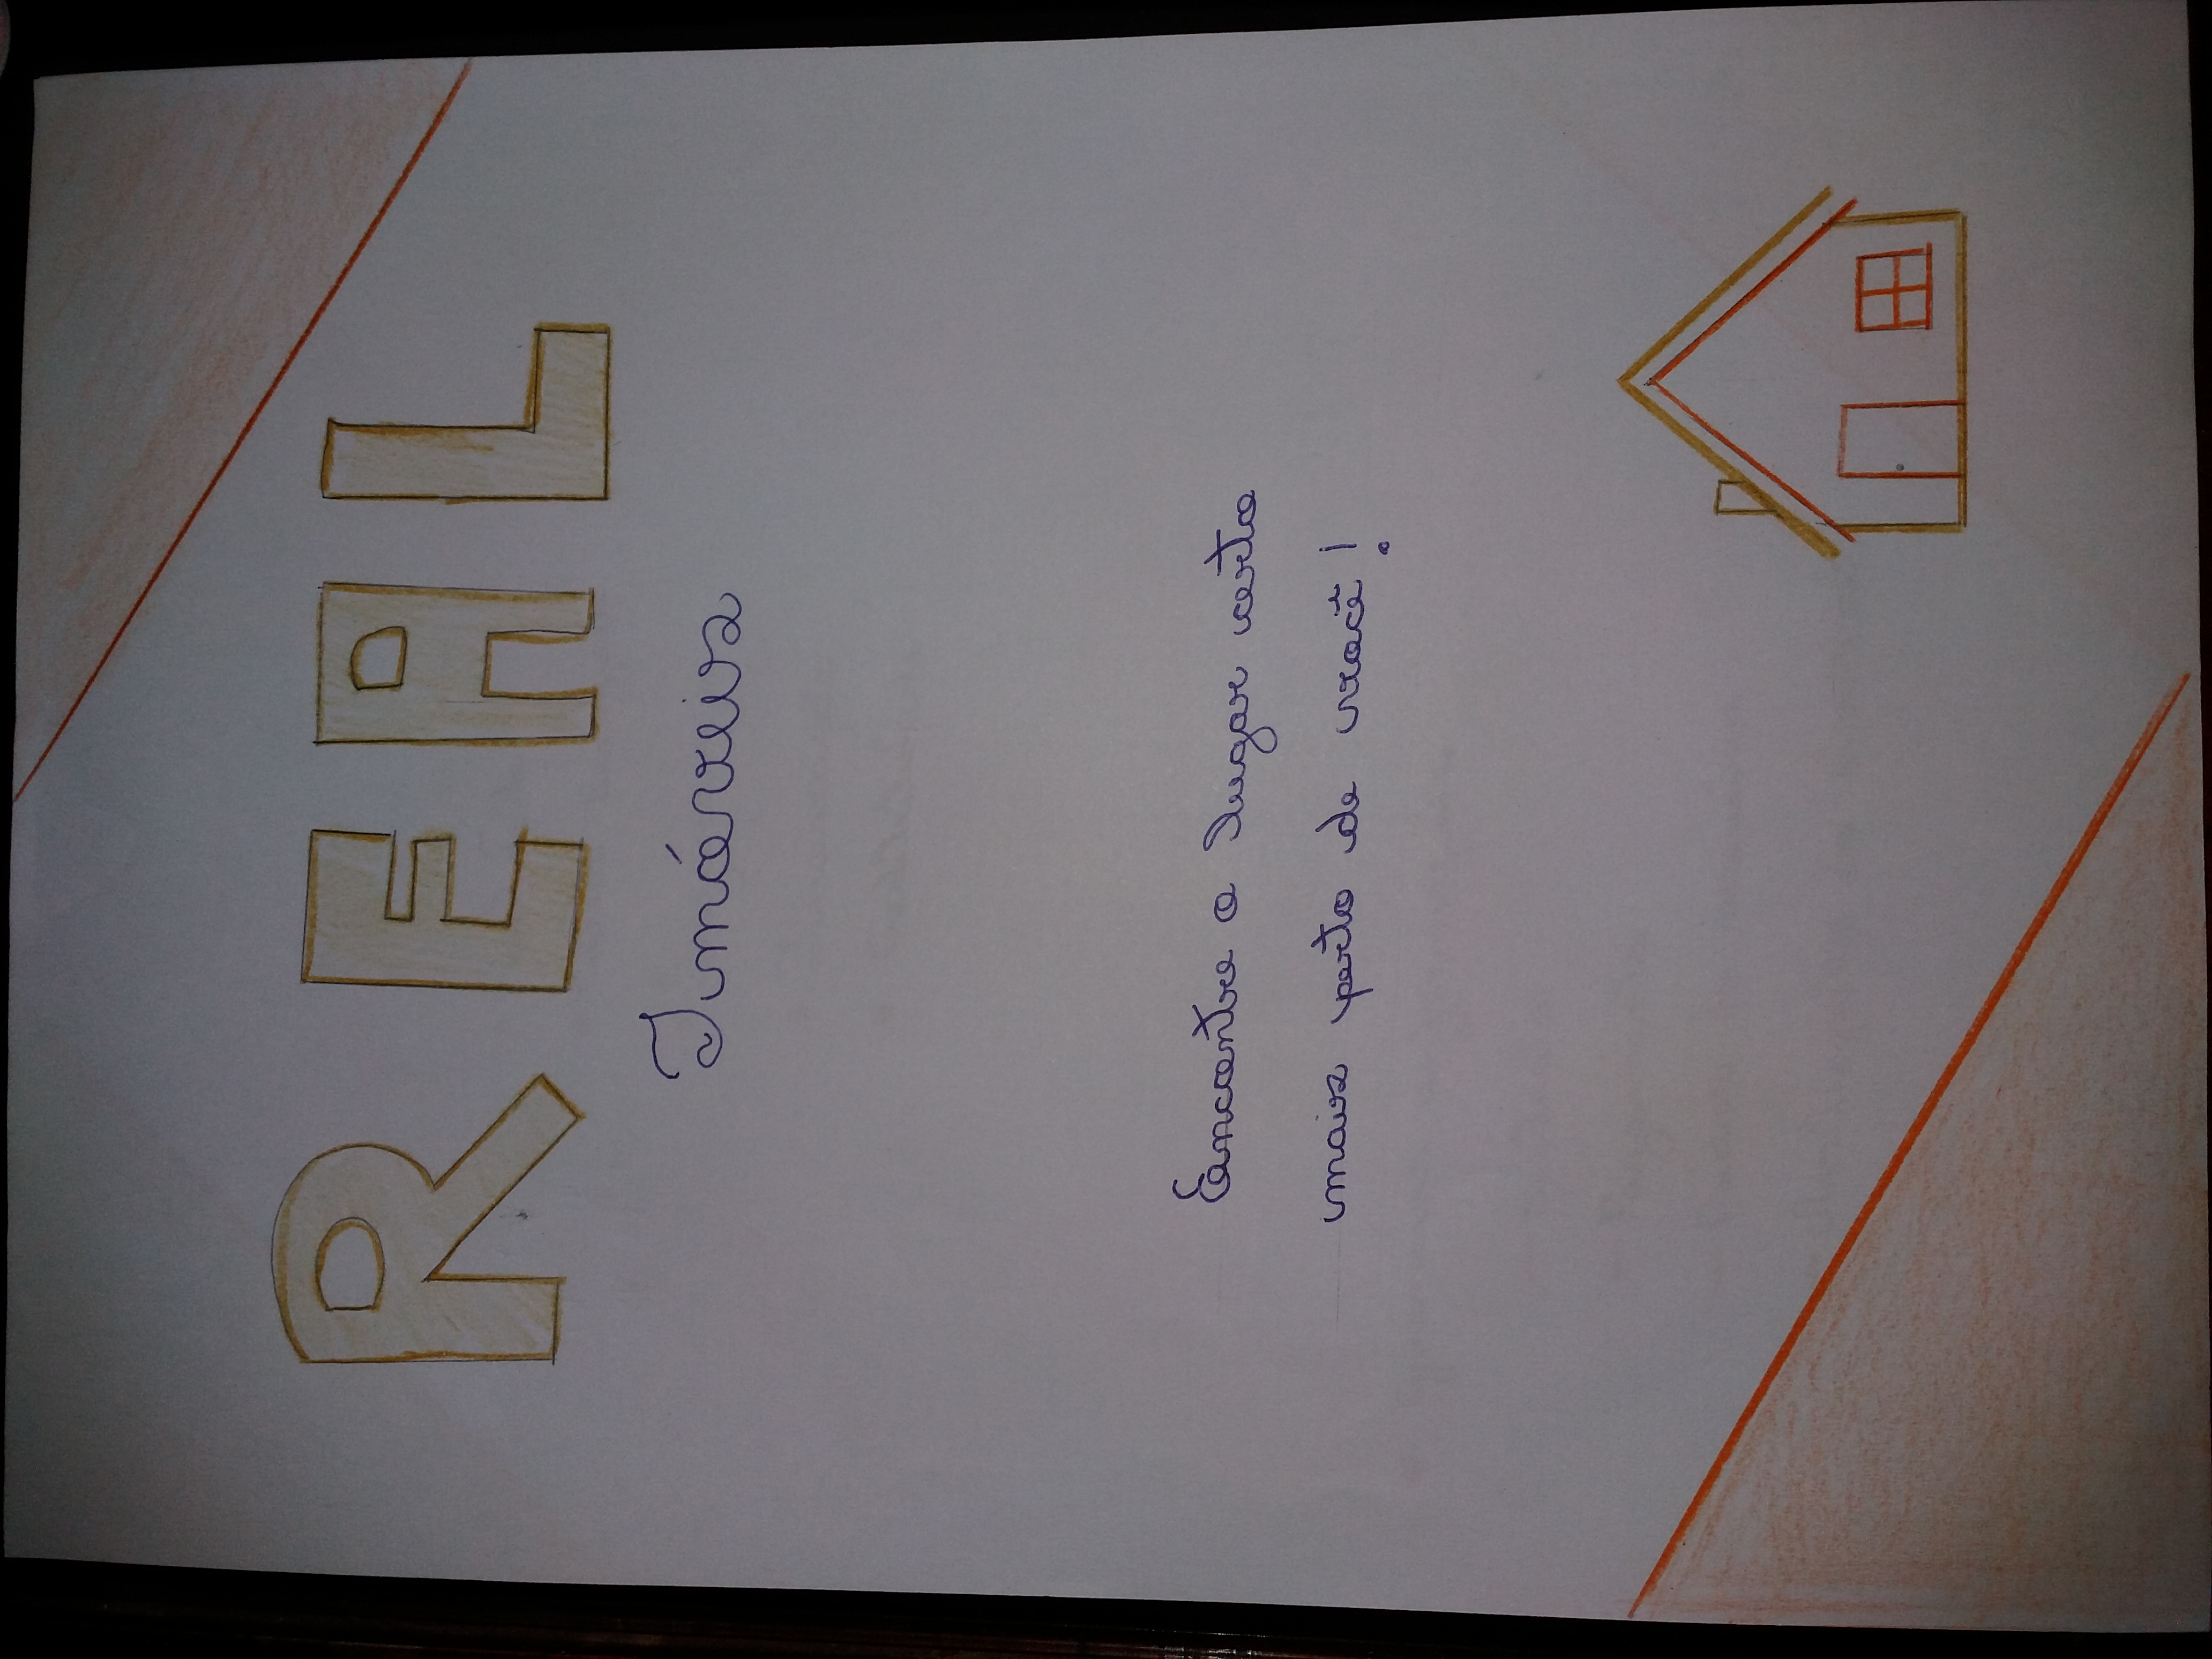 REAL
Imóveis
Encontre o lugar certo
mais perto de você!